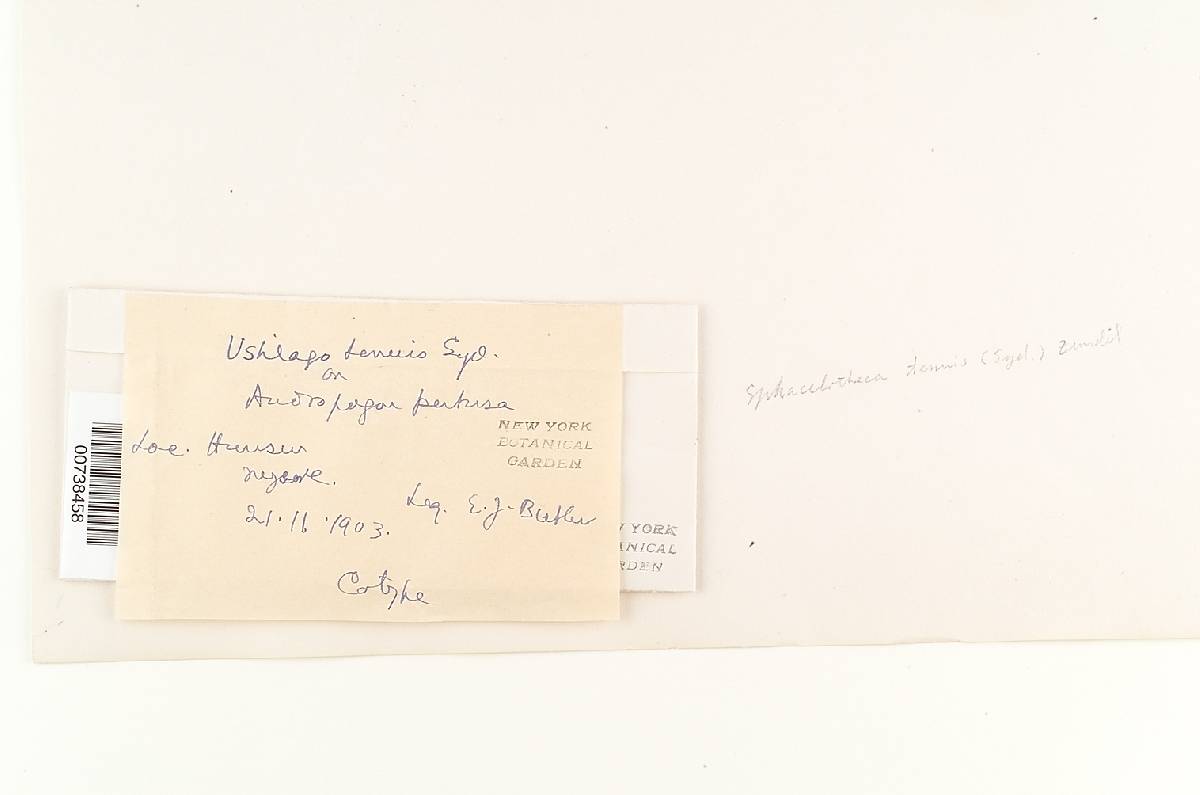 Ustilago tenuis Syd.
on
Andropogon pertusa
NEW YORK
BOTANICAL
GARDEN
Loc. Hunsur
Mysore.
Leg. E. J. Butler
21.11.1903.
Cotype
00738458
YORK
ANICAL
RDEN
Sphacelotheca tenuis (Syd.) Zundel